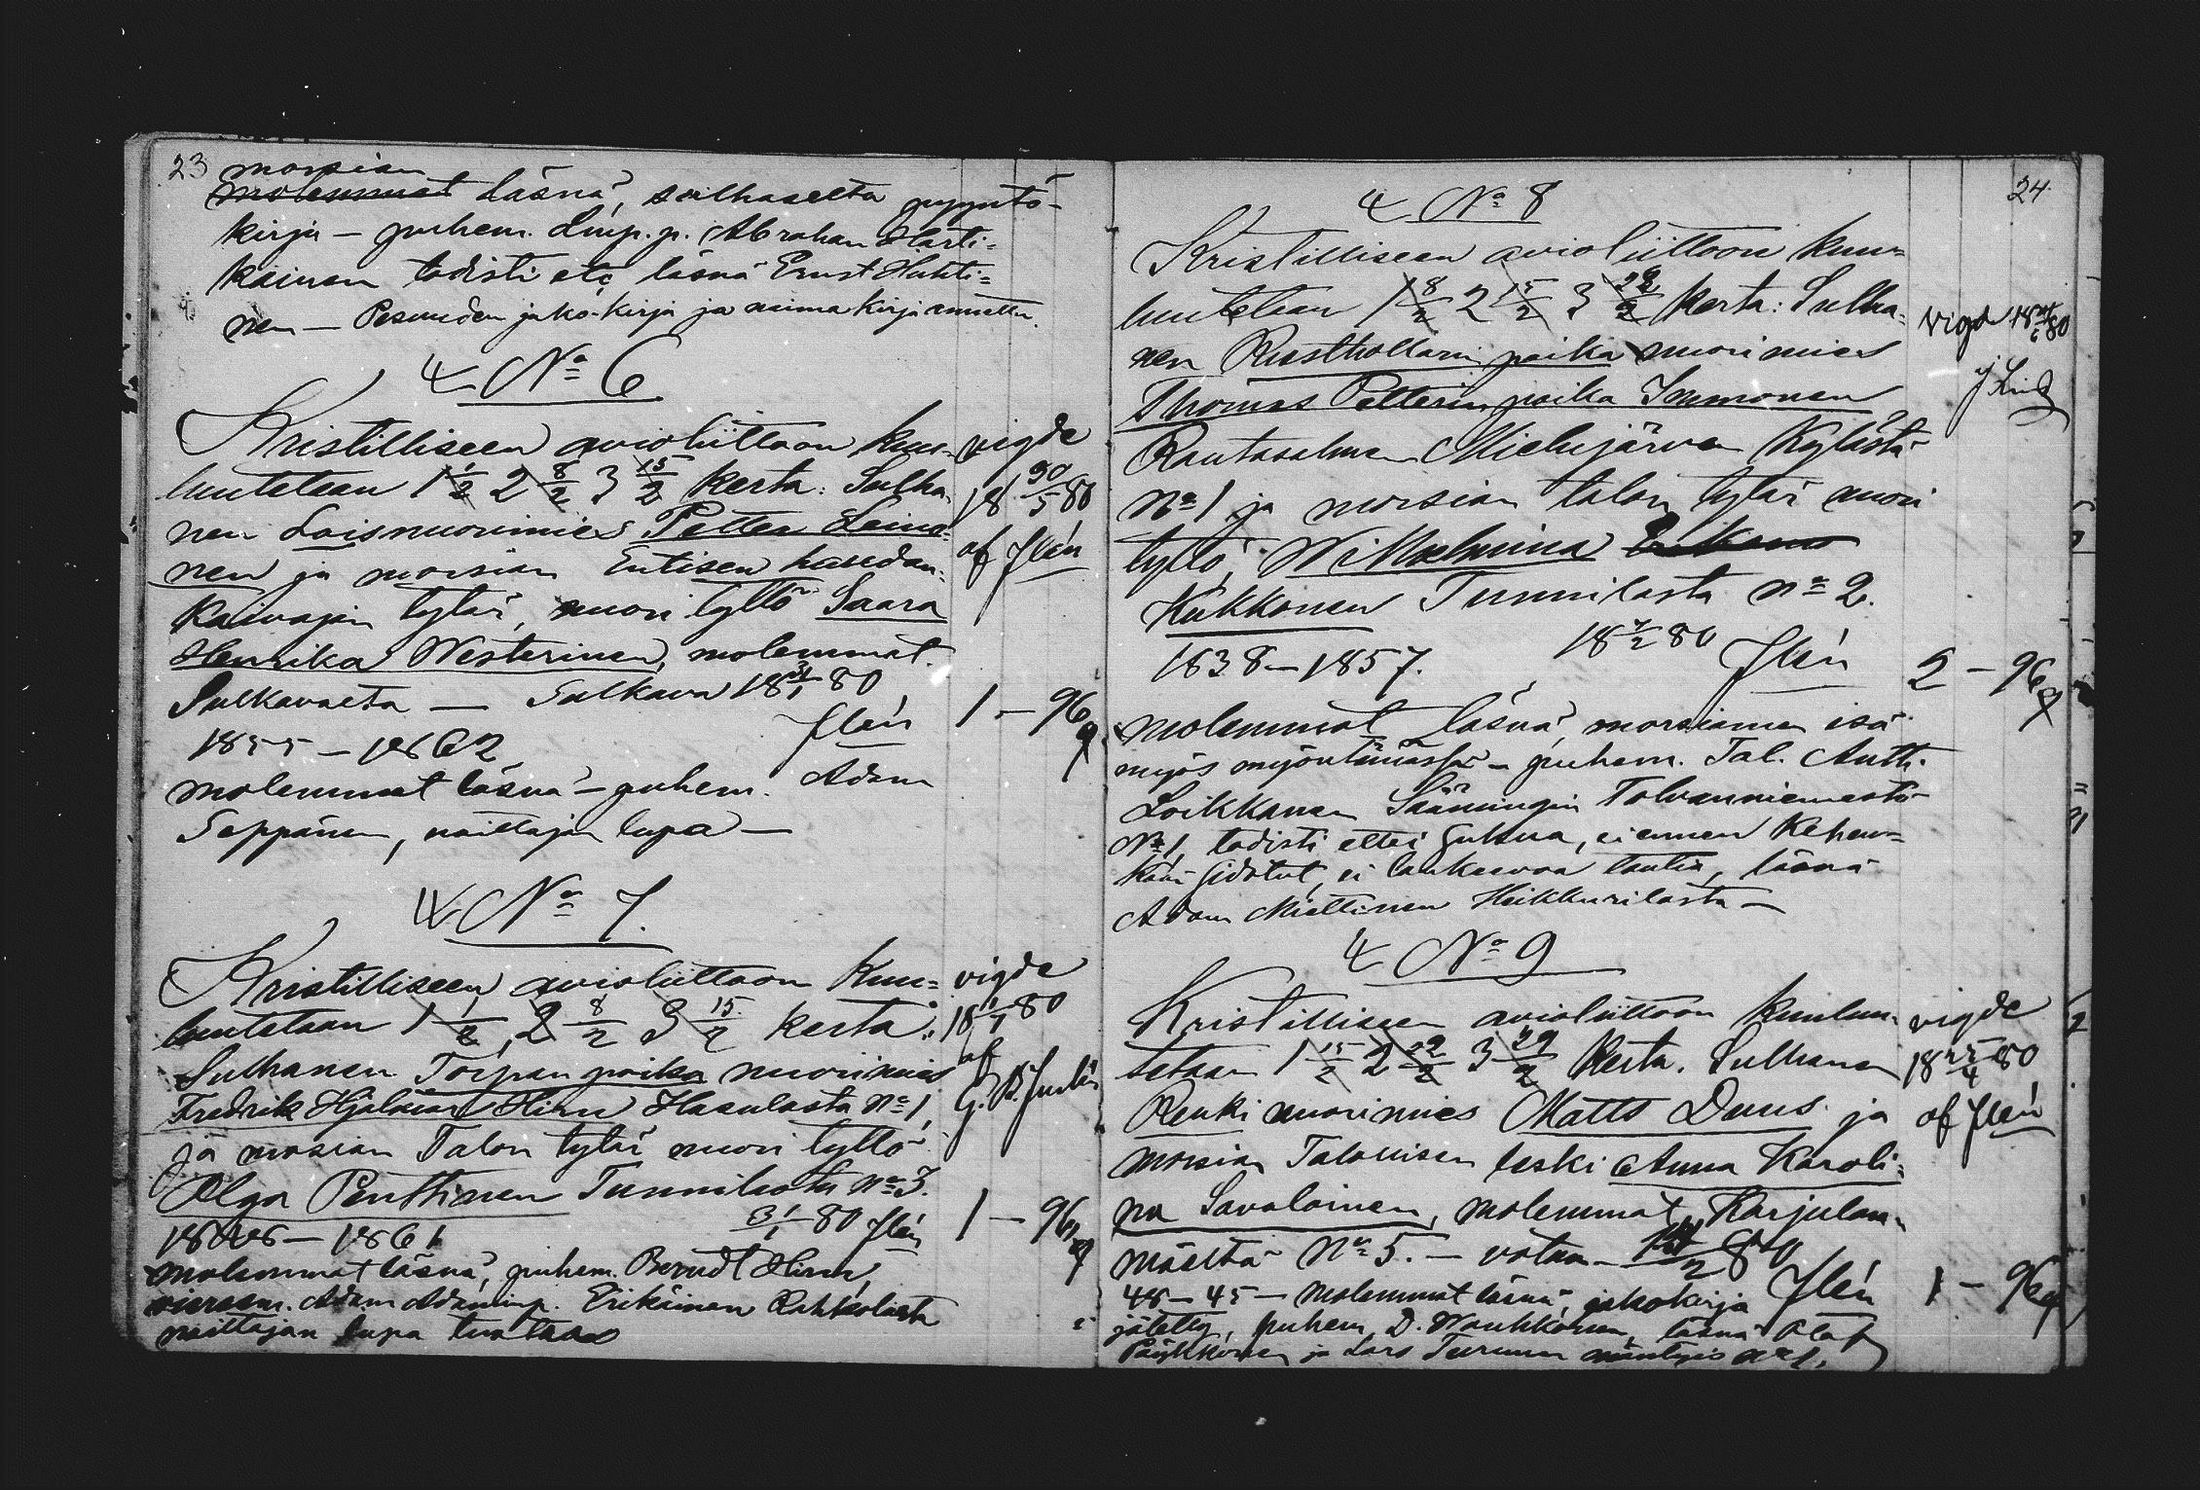 23 morsian
molemmat läsnä, sulhaselta pyyntö-
kirja – puhem. Lmp.p. Abraham Harti=
kainen todisti etc läsnä Ernst Huhti=
nen – Pesuuden jako-kirja ja naimakirja annettu.
4 No 6
Kristilliseen avioliittoon kuu-
lutetaan 1 1/2 2 8/2 3 15/2 kerta: Sulha-
nen Loisnuorimies Petter Leino-
nen ja morsian Entisen haudan-
kaivajan tytär, nuori tyttö Saara
Henrika Westerinen, molemmat
Sulkavalta — Sulkava 18 31/1 80
Flén
1855 – 1862
molemmat läsnä – puhem. Adam
Seppänen, naittajan lupa —
vigde
18 30/5 80
af Flén
1 – 96
4 No 7.
Kristilliseen avioliittoon kuu=
lutetaan 1 1/2 2 8/2 3 15/2 kerta:
Sulhanen Torpan poika nuorimies
Fredrik Hjalmar Hirn Hasulasta No 1,
ja morsian Talon tytär nuori tyttö
Olga Penttinen Tunnilasta No 3.
31/1 80 Flén
– 1861
molemmat läsnä, puhem. Berndt Hirn,
vierasm. Adam Adaminp. Erikäinen Rahkolasta
naittajan lupa tuotava
vigde
18 1/7 80
af
G. B.
1 – 96
24
4 No 8
Kristilliseen avioliittoon kuu=
lutetaan 1 8/2 2 15/2 3 22/2 kerta: Sulha=
nen Rusthollarin poika nuorimies
Thomas Petterin poika Immonen
Rantasalmen Mielujärven Kylästä
No 1 ja morsian talon tytär nuori
tyttö Wilhelmina
Kukkonen Tunnilasta No 2.
18 7/2 80
1838 – 1857. Flén
molemmat läsnä, morsiamen isä
myös myöntämässä – puhem. Tal. Antti
Loikkanen Säämingin Tolvanniemestä
No 1, todisti ettei sukua, ei ennen kehen-
kään sidotut, ei laukeavaa tautia, läsnä
Adam Miettinen Heikkurilasta —
Vigde 18 80
J Lind
2 – 96
4 No 9
Kristilliseen avioliittoon kuulu-
tetaan 1 15/2 2 22/2 3 29/2 kerta. Sulhanen
Renki nuorimies Matts Duus ja
morsian Talollisen leski Anna Karoli=
na Savolainen, molemmat Karjulan-
mäeltä No 5. –
48 – 45 – molemmat läsnä, jakokirja Flén
jätetty, puhem. D. Kauhkonen, läsnä Olof
Päykkönen ja Lars Turunen No 1.
vigde
18 25/4 80
af Flén
1 – 96